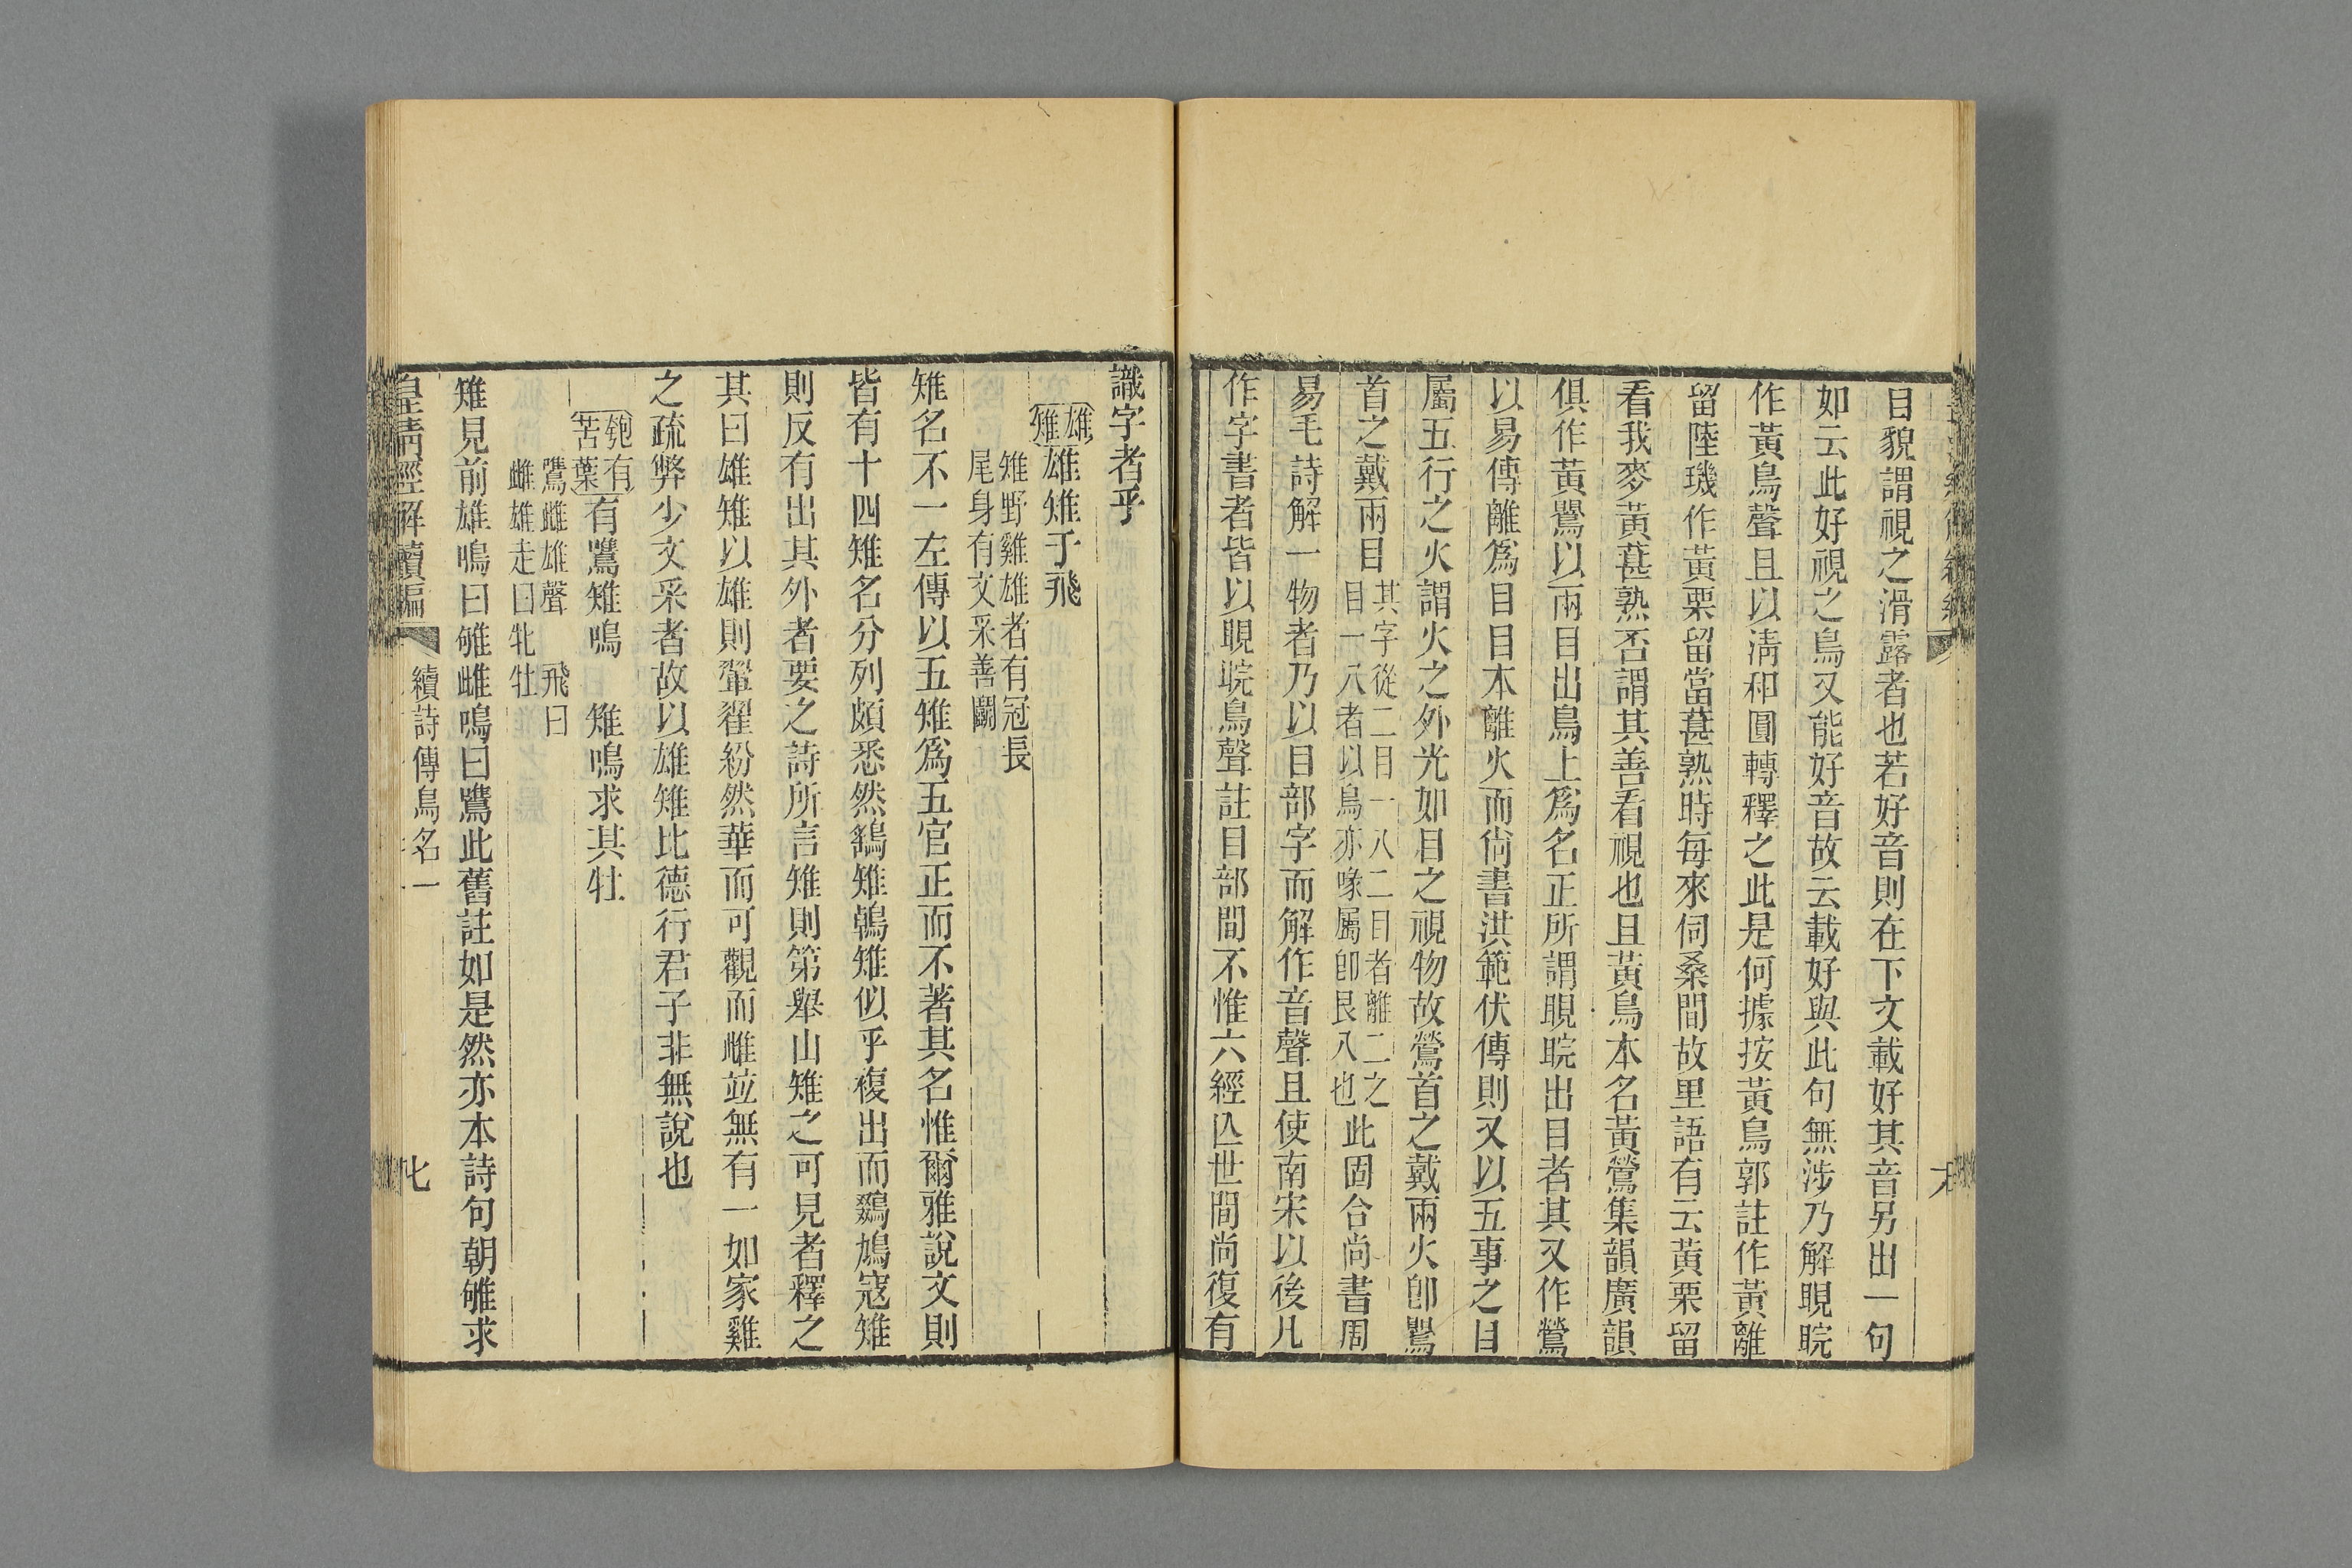 目貌謂視之滑露者也若好音則在下文載好其音另出一句
如云此好視之鳥又能好音故云載好與此句無涉乃解睍睆
作黃鳥聲且以清和圓轉釋之此是何據按黃鳥郭註作黃離
留陸璣作黃栗留當葚熟時每來伺桑間故里語有云黃栗留
看我麥黃葚熟否謂其善看視也且黃鳥本名黃鶯集韻廣韻
俱作黃鸎以兩目出鳥上爲名正所謂睍睆出目者其又作鶯
以易傳離爲目目本離火而尙書洪範伏傳則又以五事之目
屬五行之火謂火之外光如目之視物故鶯首之戴兩火卽鸎
首之戴兩目其字從二目一八二目者離二之
目一八者以鳥亦喙屬卽艮八也此固合尚書周
易毛詩解一物者乃以目部字而解作音聲且使南宋以後凡
作字書者皆以睍睆鳥聲註目部間不惟六經亾世間尚復有
識字者乎
雄雉雄雉于飛
雉野雞雄者有冠長
尾身有文采善鬭
雉名不一左傳以五雉爲五官正而不著其名惟爾雅說文則
皆有十四雉名分列頗悉然鷂雉鶾雉似乎複出而鷄鳩寇雉
則反有出其外者要之詩所言雉則第舉山雉之可見者釋之
其曰雄雉以雄則翬翟紛然華而可觀而雌竝無有一如家雞
之疏弊少文采者故以雄雉比德行君子非無說也
匏有苦葉有鷕雉鳴　雉鳴求其牡
鷕雌雄聲　飛曰
雌雄走曰牝牡
雉見前雄鳴曰雊雌鳴曰鷕此舊註如是然亦本詩句朝雊求
皇清經解續編　續詩傳鳥名一　七